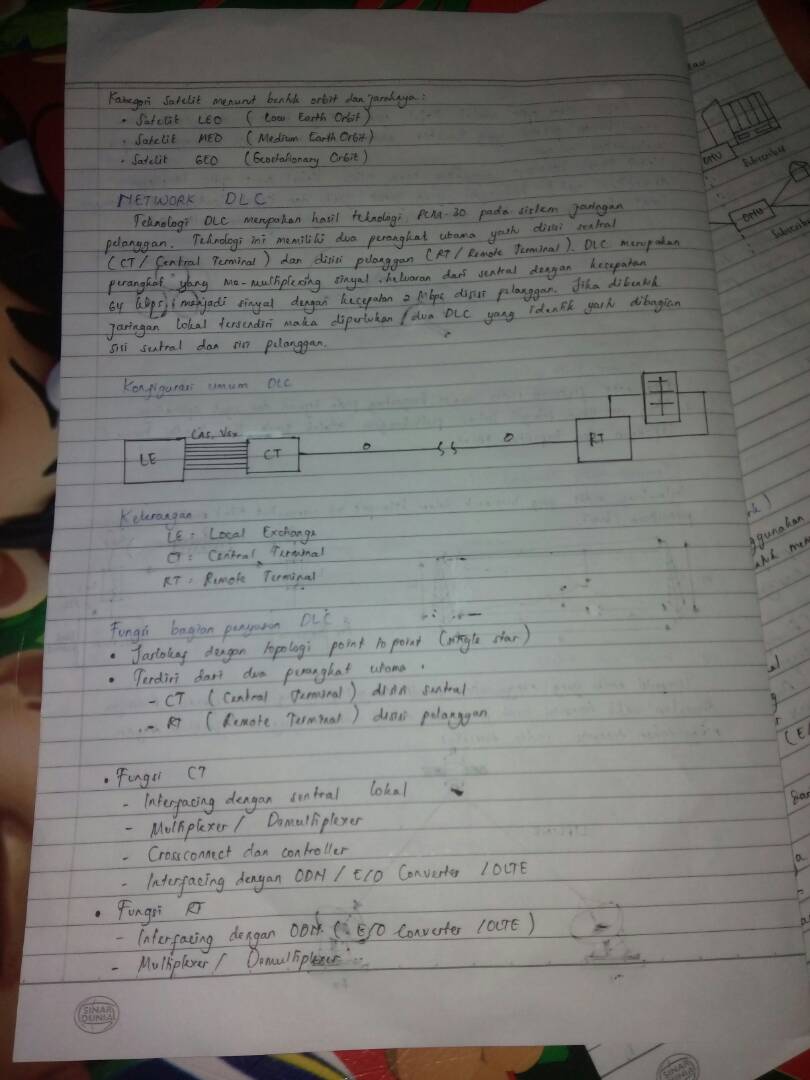 Kategori Satelit menurut bentuk orbit dan jaraknya :
• Satelit LEO ( Low Earth Orbit )
• Satelit MEO ( Medium Earth Orbit )
• Satelit GEO ( Geostationary Orbit )
NETWORK DLC
Teknologi DLC merupakan hasil teknologi PCM-30 pada sistem jaringan
pelanggan. Teknologi ini memiliki dua perangkat utama yaitu disisi sentral
( CT / Central Terminal ) dan disisi pelanggan ( RT / Remote Terminal ). DLC merupakan
perangkat yang me-multiplexing sinyal keluaran dari sentral dengan kecepatan
64 kbps menjadi sinyal dengan kecepatan 2 Mbps disisi pelanggan. Jika dibentuk
jaringan lokal tersendiri maka diperlukan dua DLC yang identik yaitu dibagian
sisi sentral dan sisi pelanggan.
Konfigurasi umum DLC
LE
CAS, V5x
CT
RT
Keterangan :
LE : Local Exchange
CT : Central Terminal
RT : Remote Terminal
Fungsi bagian penyusun DLC :
• Jarlokaf dengan topologi point to point ( single star )
• Terdiri dari dua perangkat utama :
- CT ( Central Terminal ) disisi sentral
- RT ( Remote Terminal ) disisi pelanggan
• Fungsi CT
- Interfacing dengan sentral lokal
- Multiplexer / Demultiplexer
- Crossconnect dan controller
- Interfacing dengan ODN / E/O Converter / OLTE
• Fungsi RT
- Interfacing dengan ODN ( E/O Converter / OLTE )
- Multiplexer / Demultiplexer
SINAR DUNIA
Subscriber
Subscriber
SINAR